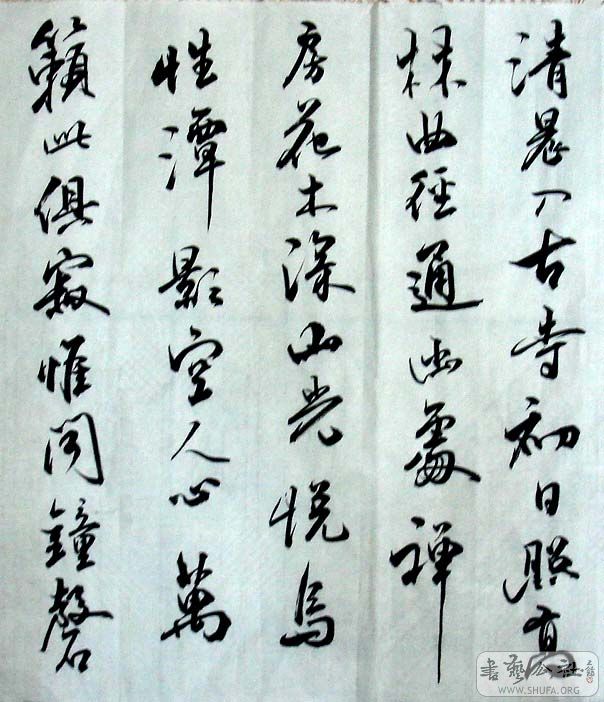 清晨入古寺初日照高
林曲徑通幽處禪
房花木深山光悦鳥
性潭影空人心萬
籟此俱寂惟聞鐘磬
書藝公社
WWW.SHUFA.ORG